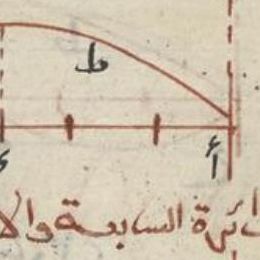 ط
أ
ئرة السابعة والا